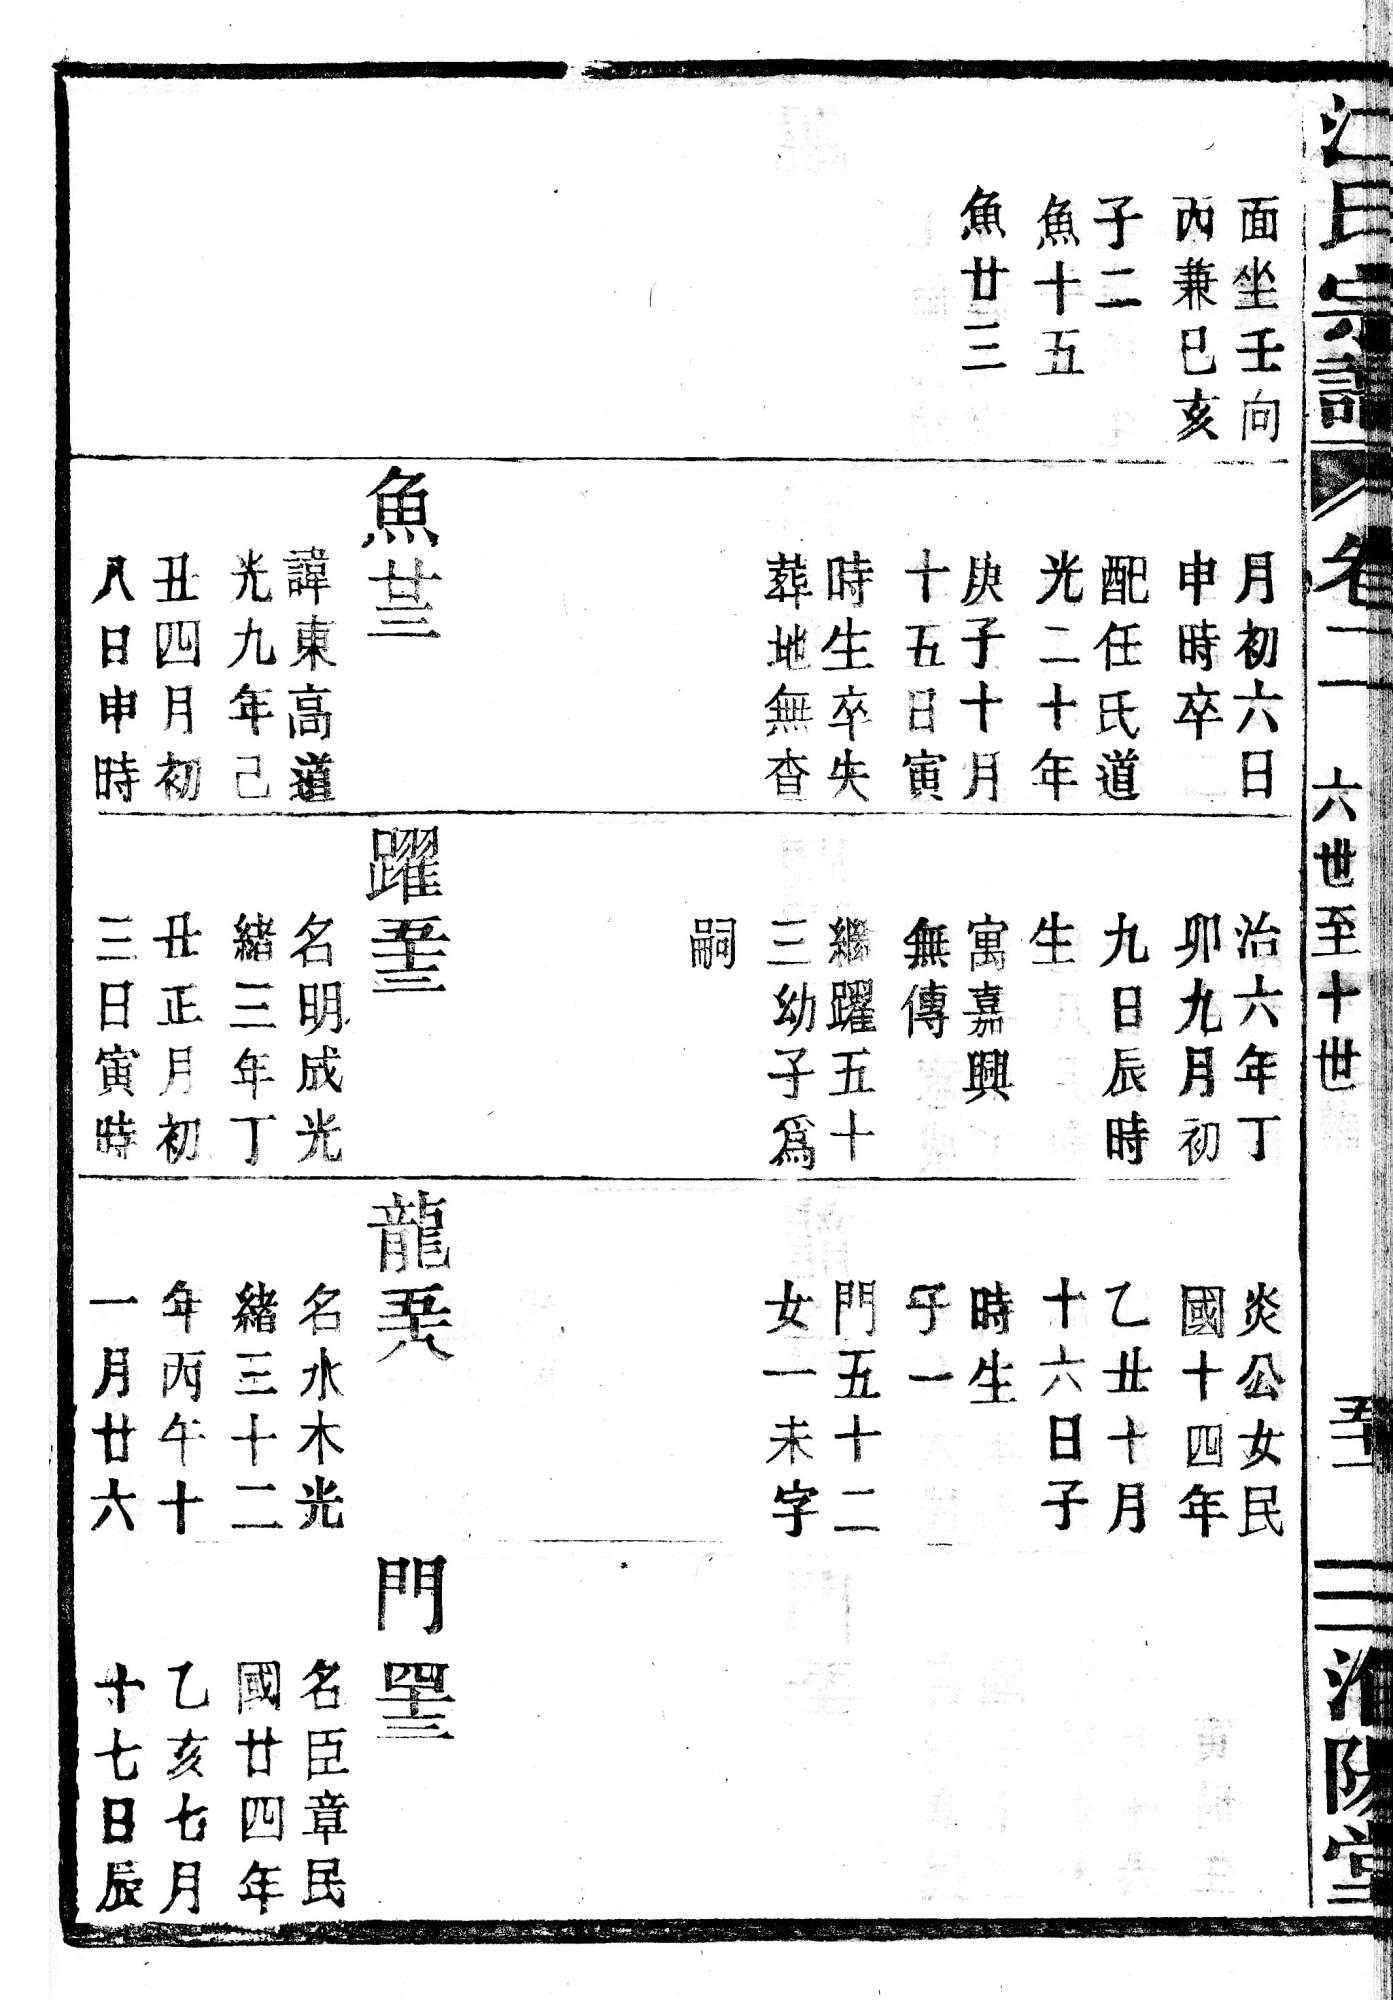 江氏宗譜
卷二
六世至十世
五十一
淮陽堂
面坐壬向
丙兼巳亥
子二
魚十五
魚廿三
月初六日
申時卒
配任氏道
光二十年
庚子十月
十五日寅
時生卒失
葬地無查
魚廿三
諱東高道
光九年己
丑四月初
八日申時
治六年丁
卯九月初
九日辰時
生
寓嘉興
無傳
繼躍五十
三幼子爲
嗣
躍五十三
名明成光
緒三年丁
丑正月初
三日寅時
炎公女民
國十四年
乙丑十月
十六日子
時生
子一
門五十二
女一未字
龍五十八
名水木光
緒三十二
年丙午十
一月廿六
門四十三
名臣章民
國廿四年
乙亥七月
十七日辰